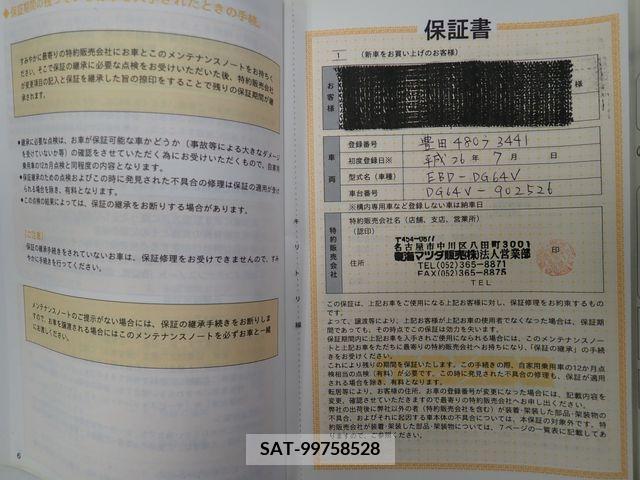 保証期間の残っている
入手されたときの手続
すみやかに最寄りの特約販売会社にお車とこのメンテナンスノートをお持ちく
ださい。そこで保証の継承に必要な点検をお受けいただいた後、特約販売会社
が変更項目の記入と保証を継承した旨の捺印をすることで残りの保証期間が継
承されます。
●継承に必要な点検は、お車が保証可能な車かどうか(事故等による大きなダメージ
を受けていないか等)の確認をさせていただく為にお受けいただくもので、自家用
乗用車の12か月点検と同程度の内容となります。
●保証継承のための点検およびこの時に発見された不具合の修理は保証の適用が受け
られる場合を除き、有料となります。
●この点検の結果によっては、保証の継承をお断りする場合があります。
〔ご注意〕
保証の継承手続きをされていないお車は、保証修理をお受けできませんので、すみ
やかに手続きを行ってください。
メンテナンスノートのご提示がない場合には、保証の継承手続きをお断りしま
すので、お車を譲渡される場合にはこのメンテナンスノートを必ずお車と一緒
にお渡しください。
6
キリトリ線
保証書
1
(新車をお買い上げのお客様)
お客様
様
車両
登録番号
豊田 480う 3441
初度登録日※
平成 26 年 7 月 日
型式名(車種)
EBD-DG64V
車台番号
DG64V-902526
※構内専用車など登録しない車は納車日
特約販売会社
特約販売会社名(店舗、支店、営業所)
(認印)
住所
〒454-0877
名古屋市中川区八田町3001
東海マツダ販売㈱法人営業部
TEL(052)365-8871
FAX(052)365-8875
印
TEL
この保証は、上記お車をご使用になる上記お客様に対し、保証修理をお約束するもの
です。
よって、譲渡等により、上記お客様が上記お車の使用者でなくなった場合は、保証期
間であっても、その時点でこの保証は効力を失います。
保証期間内に上記お車を入手されご使用になられる場合には、このメンテナンスノート
と上記お車をただちに最寄りの特約販売会社へお持ちになり、「保証の継承」の手続
きをお受けください。
これにより残りの期間を保証いたします。この手続きの際、自家用乗用車の12か月点
検相当の点検(有料)が必要です。この時に発見された不具合の修理も、保証が適用
される場合を除き、有料となります。
転居等により、お客様の住所、お車の登録番号が変更になった場合には、記載内容を
変更、確認させていただきますので最寄りの特約販売会社へお申し出ください。
弊社の出荷後に弊社以外の者(特約販売会社を含む)が装着・架装した部品・架装物の
不具合、およびそれに起因する車本体の不具合については、本保証の対象外です。特
約販売会社が装着・架装した部品・架装物については、7ページの一覧表に記載してあ
りますので、ご参照ください。
SAT-99758528